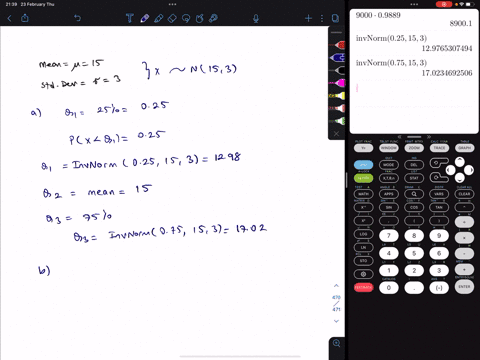 21:39 23 February Thu
mean = μ = 15
Std. Dev = σ = 3
} X ~ N(15,3)
a) Q1 = 25% = 0.25
P(X<Q1) = 0.25
Q1 = InvNorm (0.25, 15, 3) = 12.98
Q2 = mean = 15
Q3 = 75%
Q3 = InvNorm(0.75, 15, 3) = 17.02
b)
470
471
9000·0.9889
8900.1
invNorm(0.25,15,3)
12.9765307494
invNorm(0.75,15,3)
17.0234692506
WINDOW ZOOM TRACE GRAPH
MODE DEL
X,T,θ,n STAT
MATH APPS VARS CLEAR
SIN COS TAN ^
( )
LOG 7 8 9
LN 4 5 6
STO 1 2 3
0 . (-) ENTER